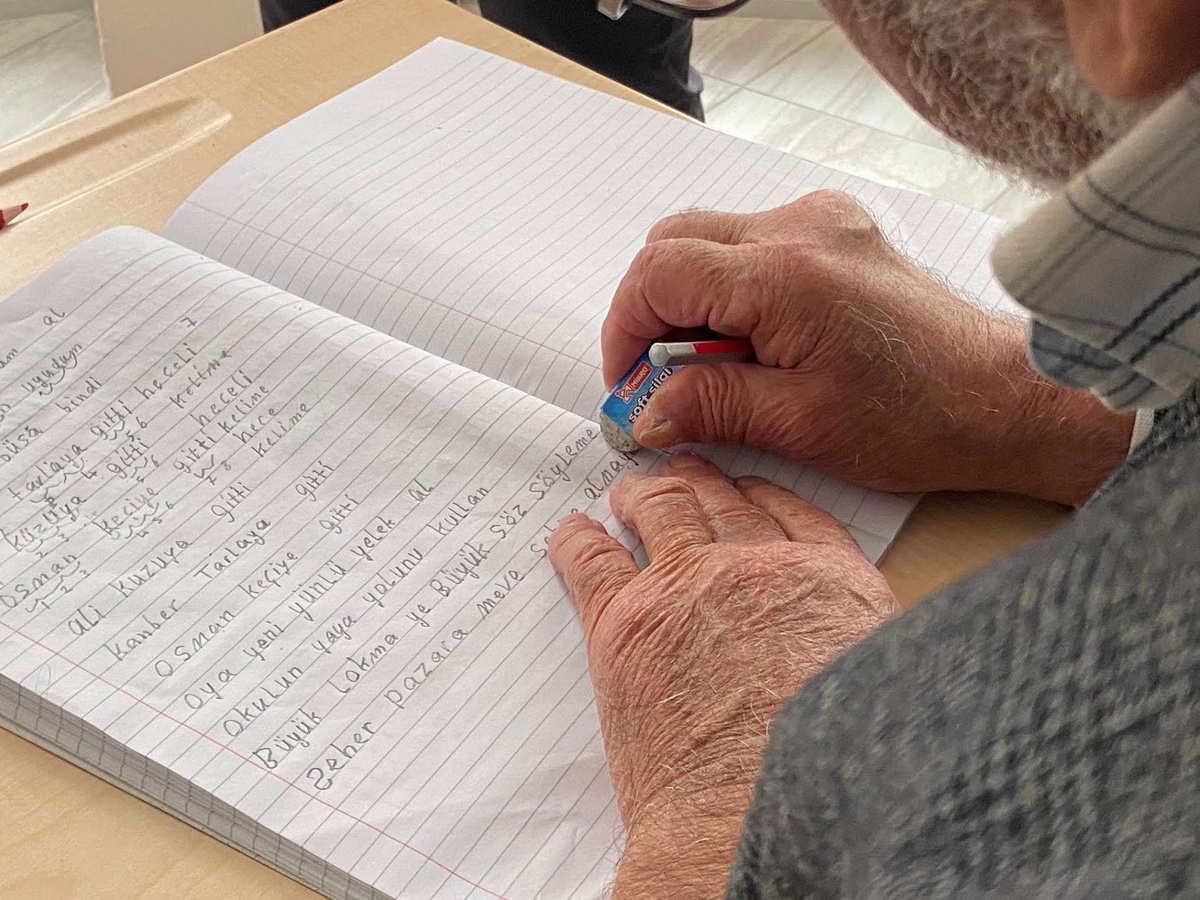 al
uyudum
bindi
tarlaya gitti heceli 7
kelime
kuzuya gitti heceli
kelime
osman keçiye gitti hece
kelime
ali kuzuya gitti
kanber Tarlaya gitti
osman keçiye gitti
oya yeni yünlü yelek al
okulun yaya yolunu kullan
Büyük lokma ye Büyük söz söyleme
Seher pazara meva
soft silgi